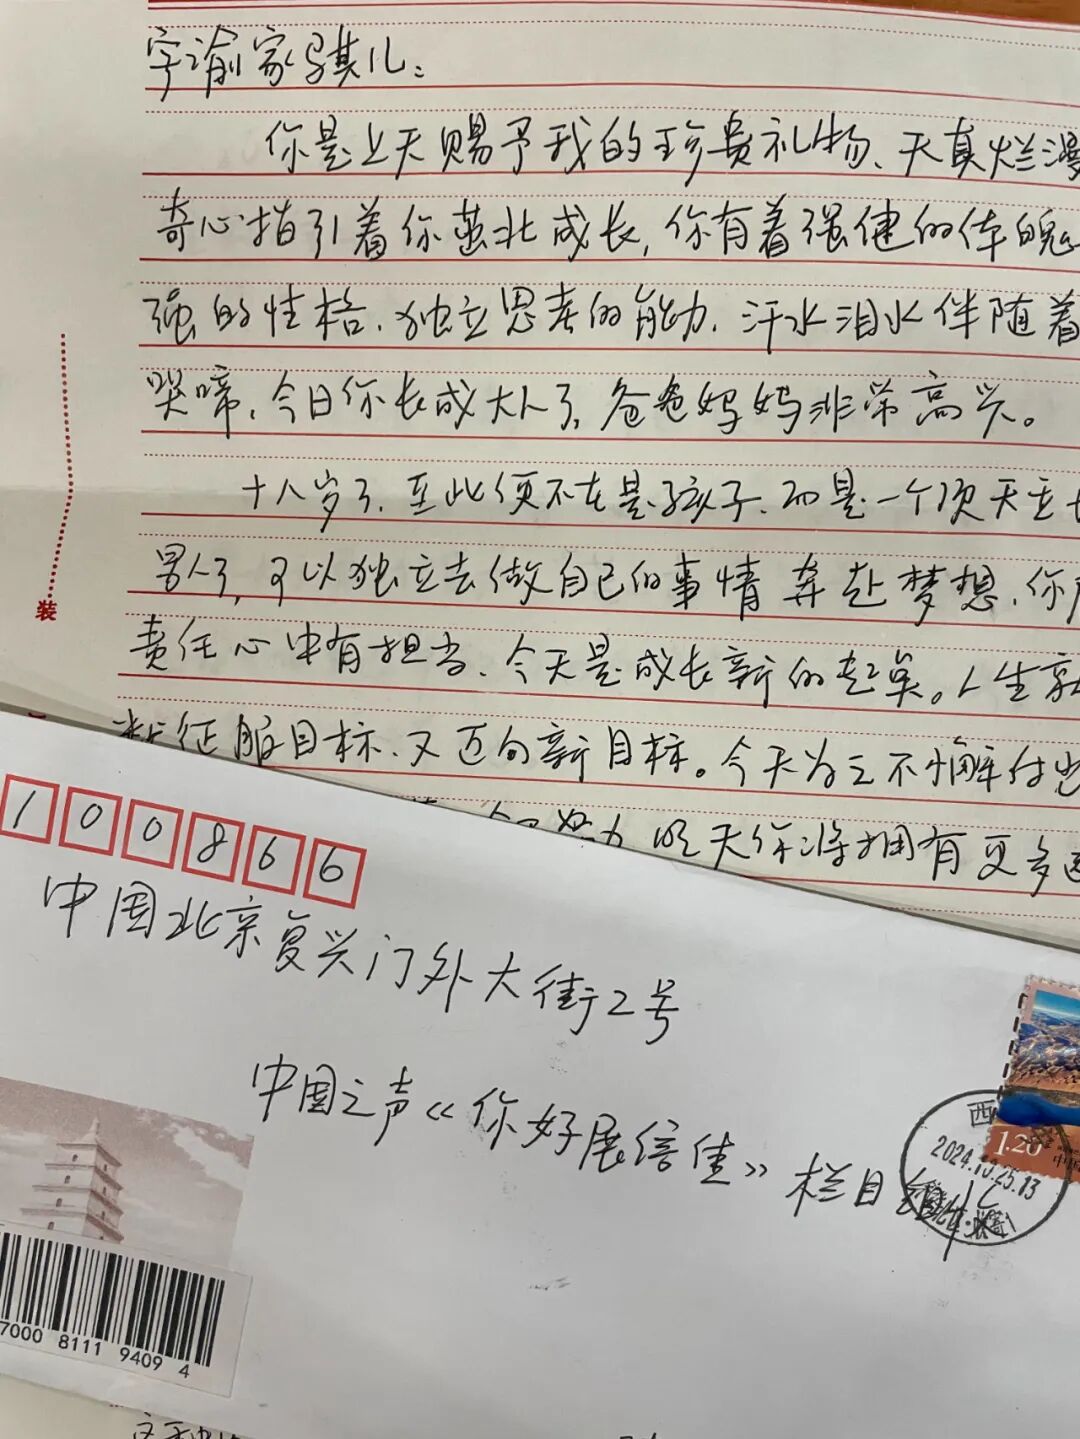 字谕家骐儿:
你是上天赐予我的珍贵礼物、天真烂漫
奇心指引着你茁壮成长,你有着强健的体魄
强的性格、独立思考的能力、汗水泪水伴随着
哭啼、今日你长成大人了,爸爸妈妈非常高兴。
十八岁了、至此便不在是孩子、而是一个顶天立
男人了,可以独立去做自己的事情奔赴梦想、你
责任心中有担当、今天是成长新的起点。人生就
征服目标、又迈向新目标。今天为之不懈付出
努力 明天你将拥有更多
装
100866
中国北京复兴门外大街2号
中国之声《你好展信佳》栏目组收
西
2024.10.25.13
1.20
中国
7000 8111 9409 4
这种